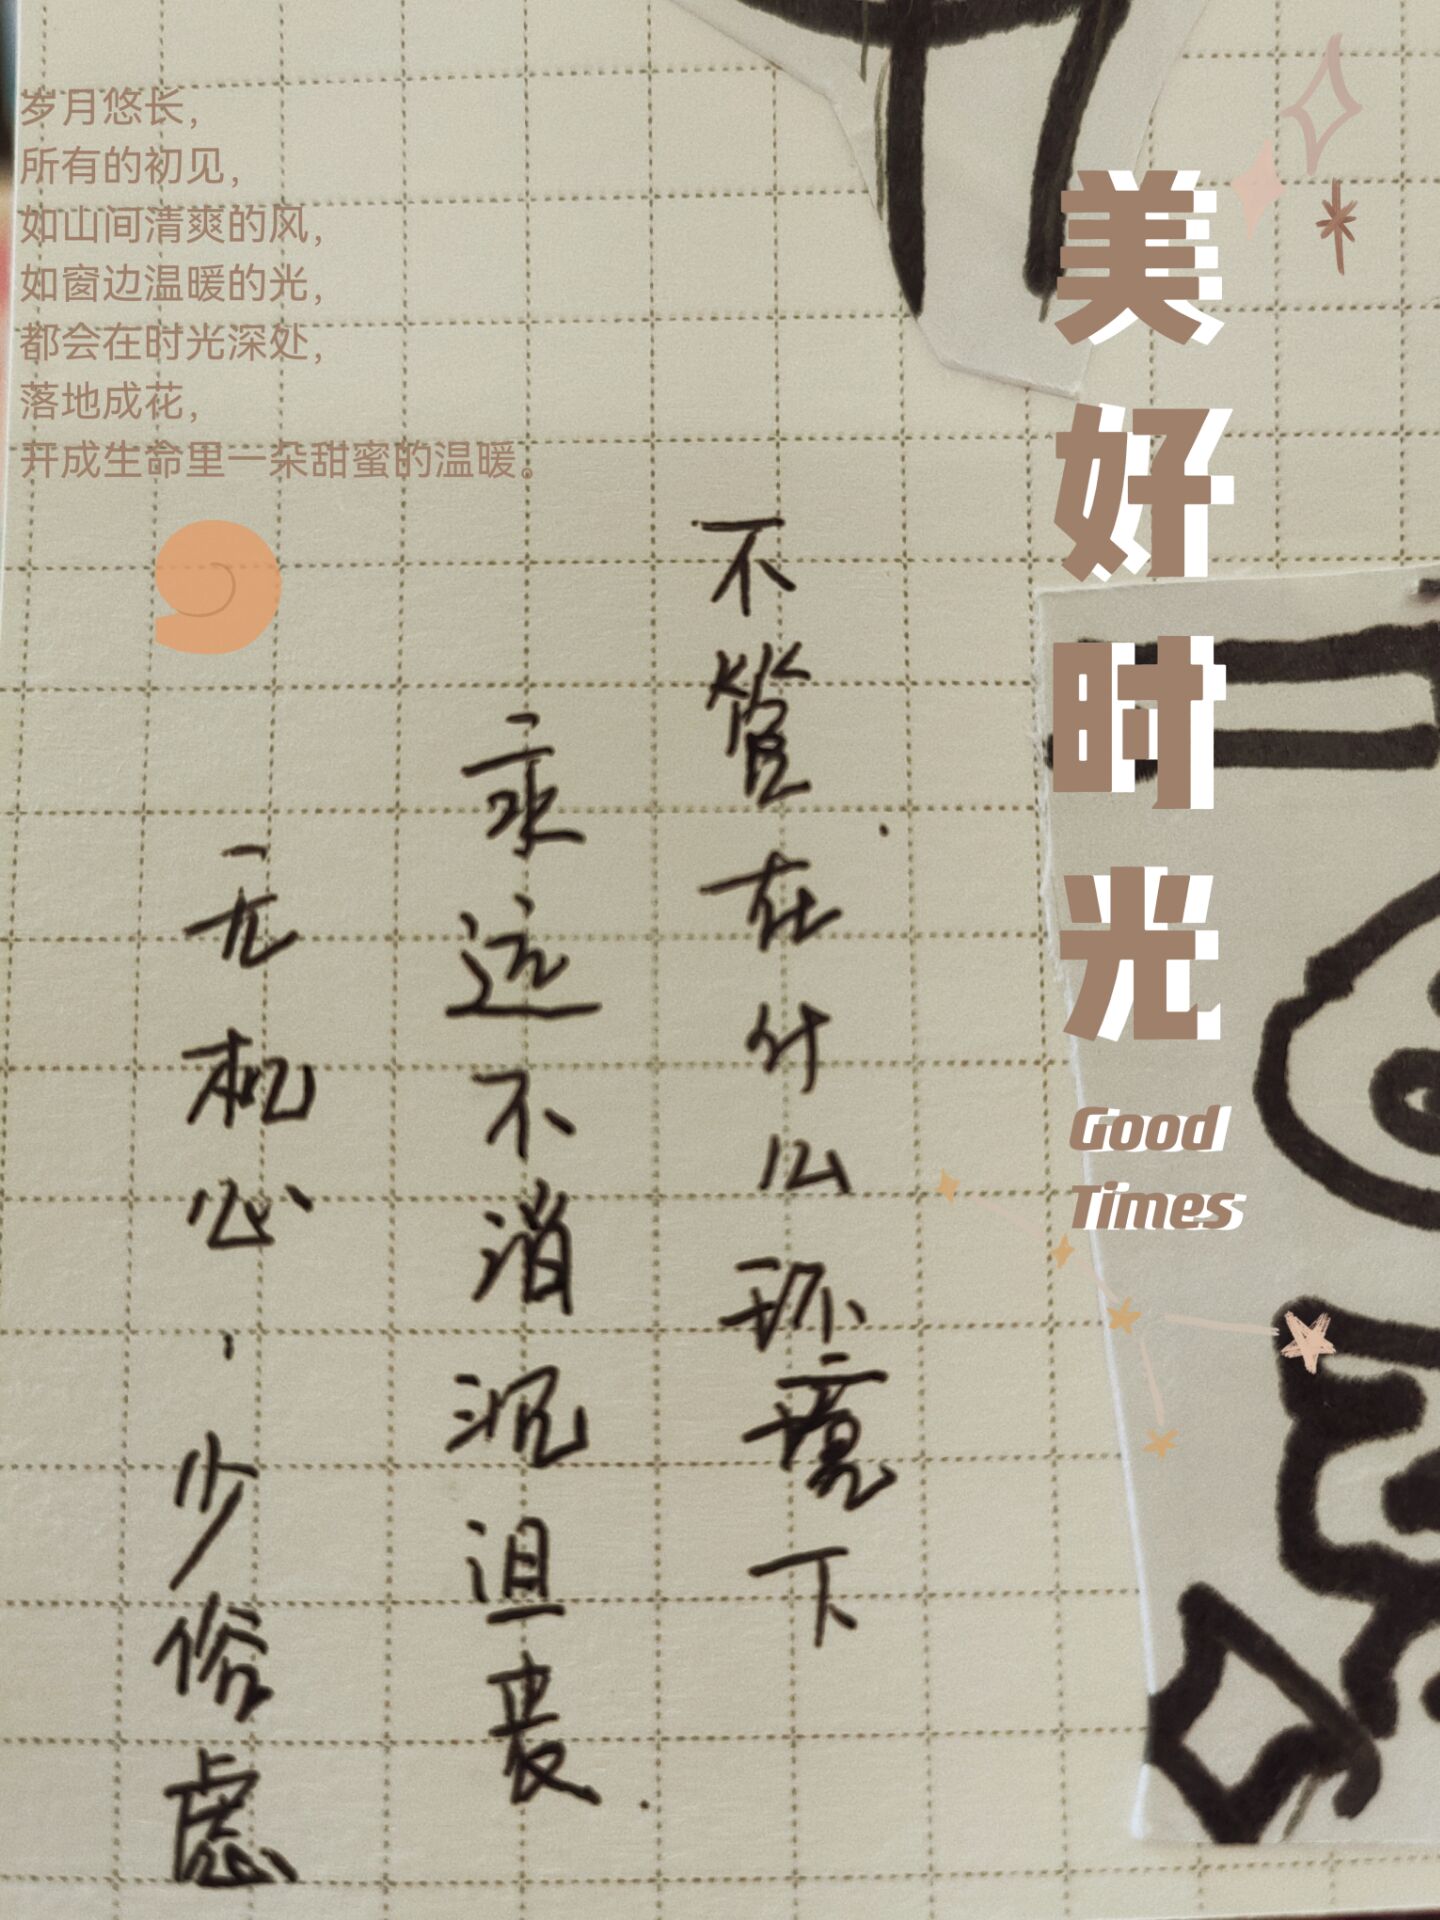 岁月悠长，
所有的初见，
如山间清爽的风，
如窗边温暖的光，
都会在时光深处，
落地成花，
开成生命里一朵甜蜜的温暖。
美好时光
Good
Times
不管在什么环境下
永远不消沉沮丧.
无机心，少俗虑